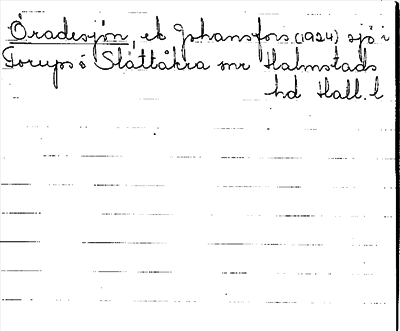 Oradesjön, ek Johansfors (1924) sjö i
Torups o Slättåkra snr Halmstads
hd Hall. l